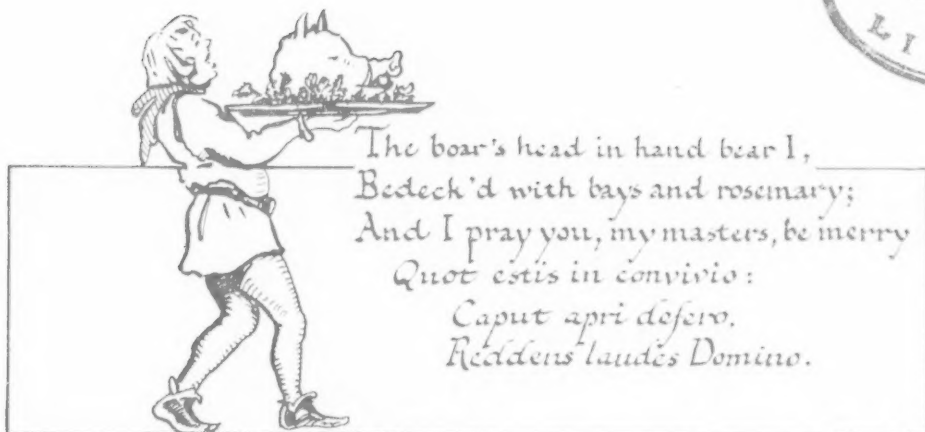 LI
The boar's head in hand bear I,
Bedeck'd with bays and rosemary;
And I pray you, my masters, be merry
Quot estis in convivio:
Caput apri defero,
Reddens laudes Domino.